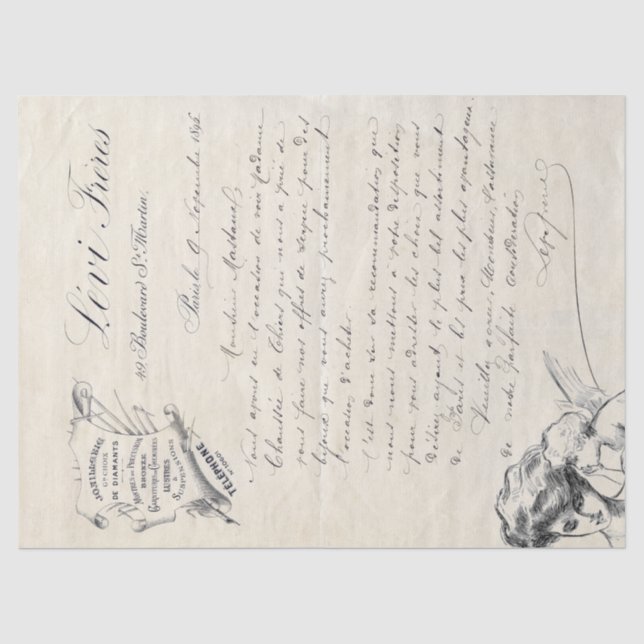 JOAILLERIE
Gd CHOIX
DE DIAMANTS
MONTRES DE PRÉCISION
BRONZE
GARNITURES DE CHEMINÉES
LUSTRES
&
SUSPENSIONS
TÉLÉPHONE
Nº 10001
Lévi Frères
49, Boulevard St Martin.
Paris le 9 Novembre 1896
Monsieur
Nous avons eu l'occasion de voir Madame
Chaussée de Thiers qui nous a prié de
vous faire nos offres de service pour des
bijoux que vous aurez prochainement
l'occasion d'acheter.
C'est donc sur sa recommandation que
nous nous mettons à votre disposition
pour vous adresser les choix que vous
désirez, ayant le plus bel assortiment
de Paris et les prix les plus avantageux.
Veuillez agréer, Monsieur, l'assurance
de notre parfaite considération